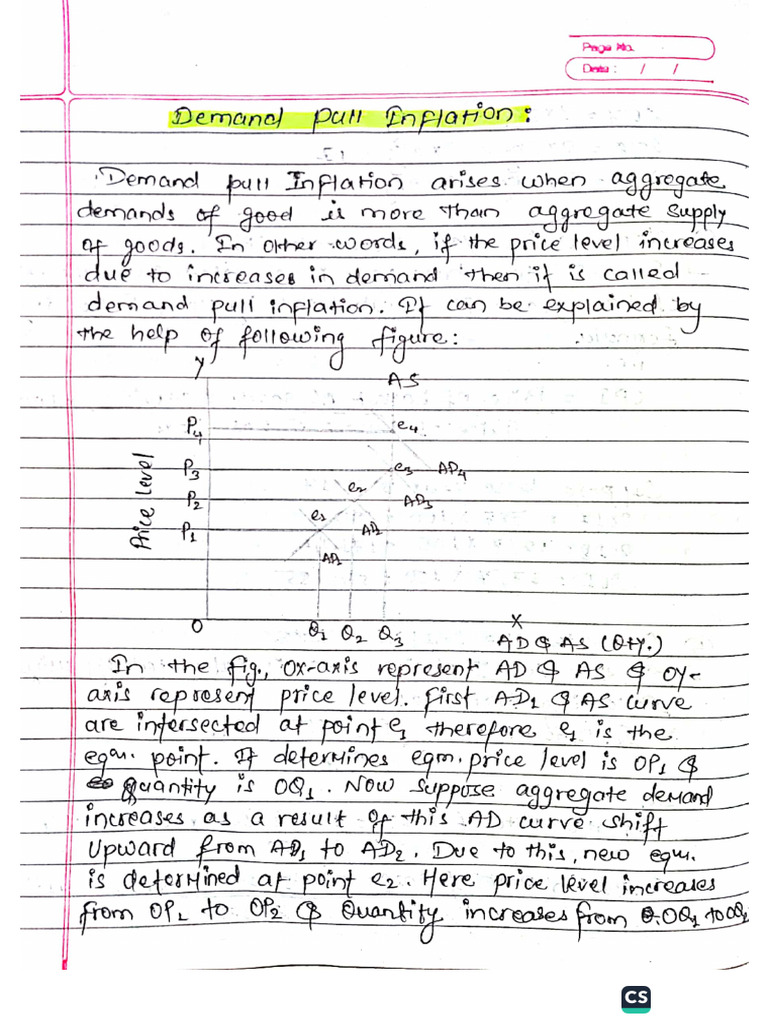 Page No.
Date: / /
Demand Pull Inflation:
Demand pull Inflation arises when aggregate
demands of good is more than aggregate supply
of goods. In other words, if the price level increases
due to increases in demand then it is called
demand pull inflation. It can be explained by
the help of following figure:
Y
AS
P4
e4
P3
e3
AD4
e2
P2
AD3
e1
P1
AD
AD1
Price level
O
Q1 Q2 Q3
X
AD & AS (Qty.)
In the fig., OX-axis represent AD & AS & OY-
axis represent price level. First AD1 & AS curve
are intersected at point e1 therefore e1 is the
eqm. point. It determines eqm. price level is OP1 &
Quantity is OQ1. Now suppose aggregate demand
increases as a result of this AD curve shift
upward from AD1 to AD2. Due to this, new eqm.
is determined at point e2. Here price level increases
from OP1 to OP2 & Quantity increases from OQ1 to OQ2
CS